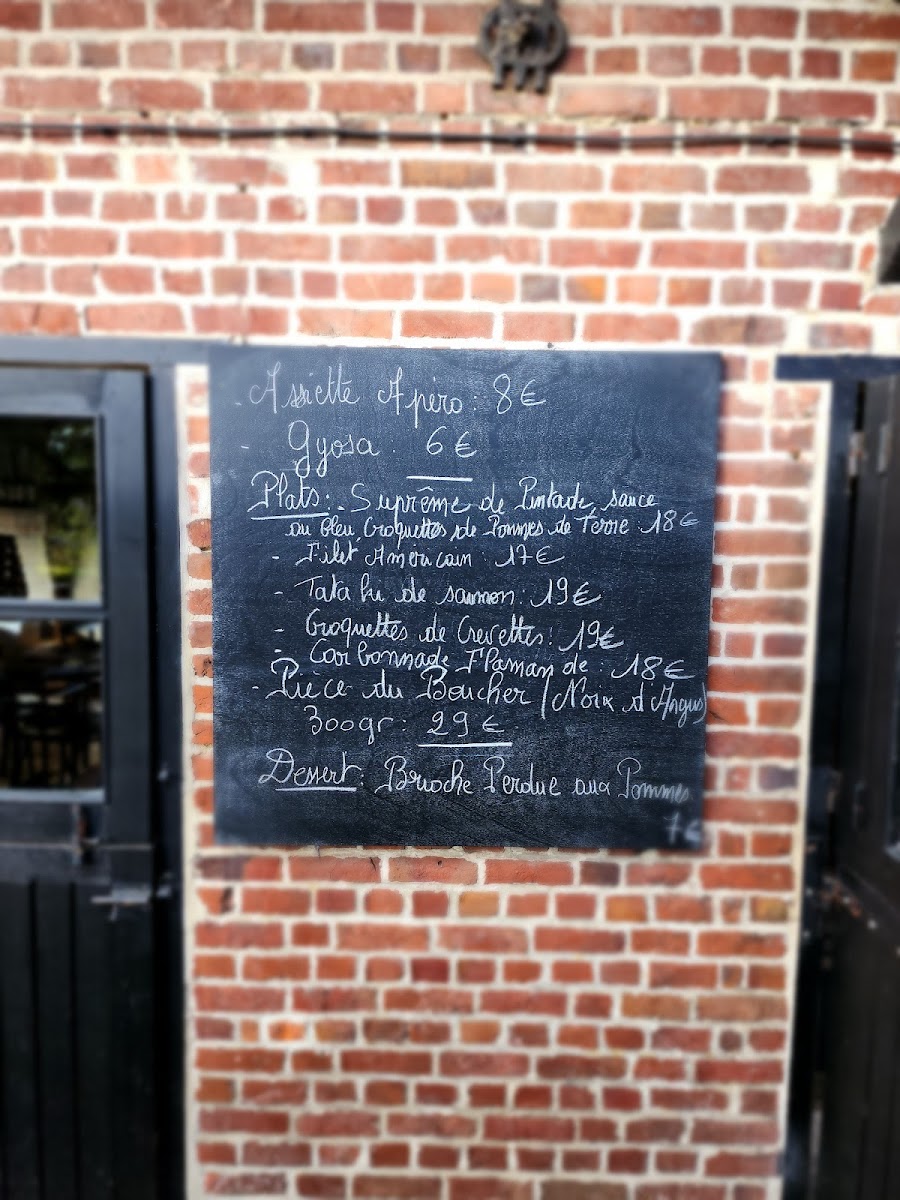 - Assiette Apéro : 8€
- Gyosa : 6€
Plats : - Suprême de Pintade, sauce
au bleu, Croquettes de Pommes de Terre 18€
- Filet Américain : 17€
- Tataki de saumon : 19€
- Croquettes de Crevettes : 19€
- Carbonnade Flamande : 18€
- Pièce du Boucher (Noix d'Angus)
300gr : 29€
Dessert : Brioche Perdue aux Pommes
7€